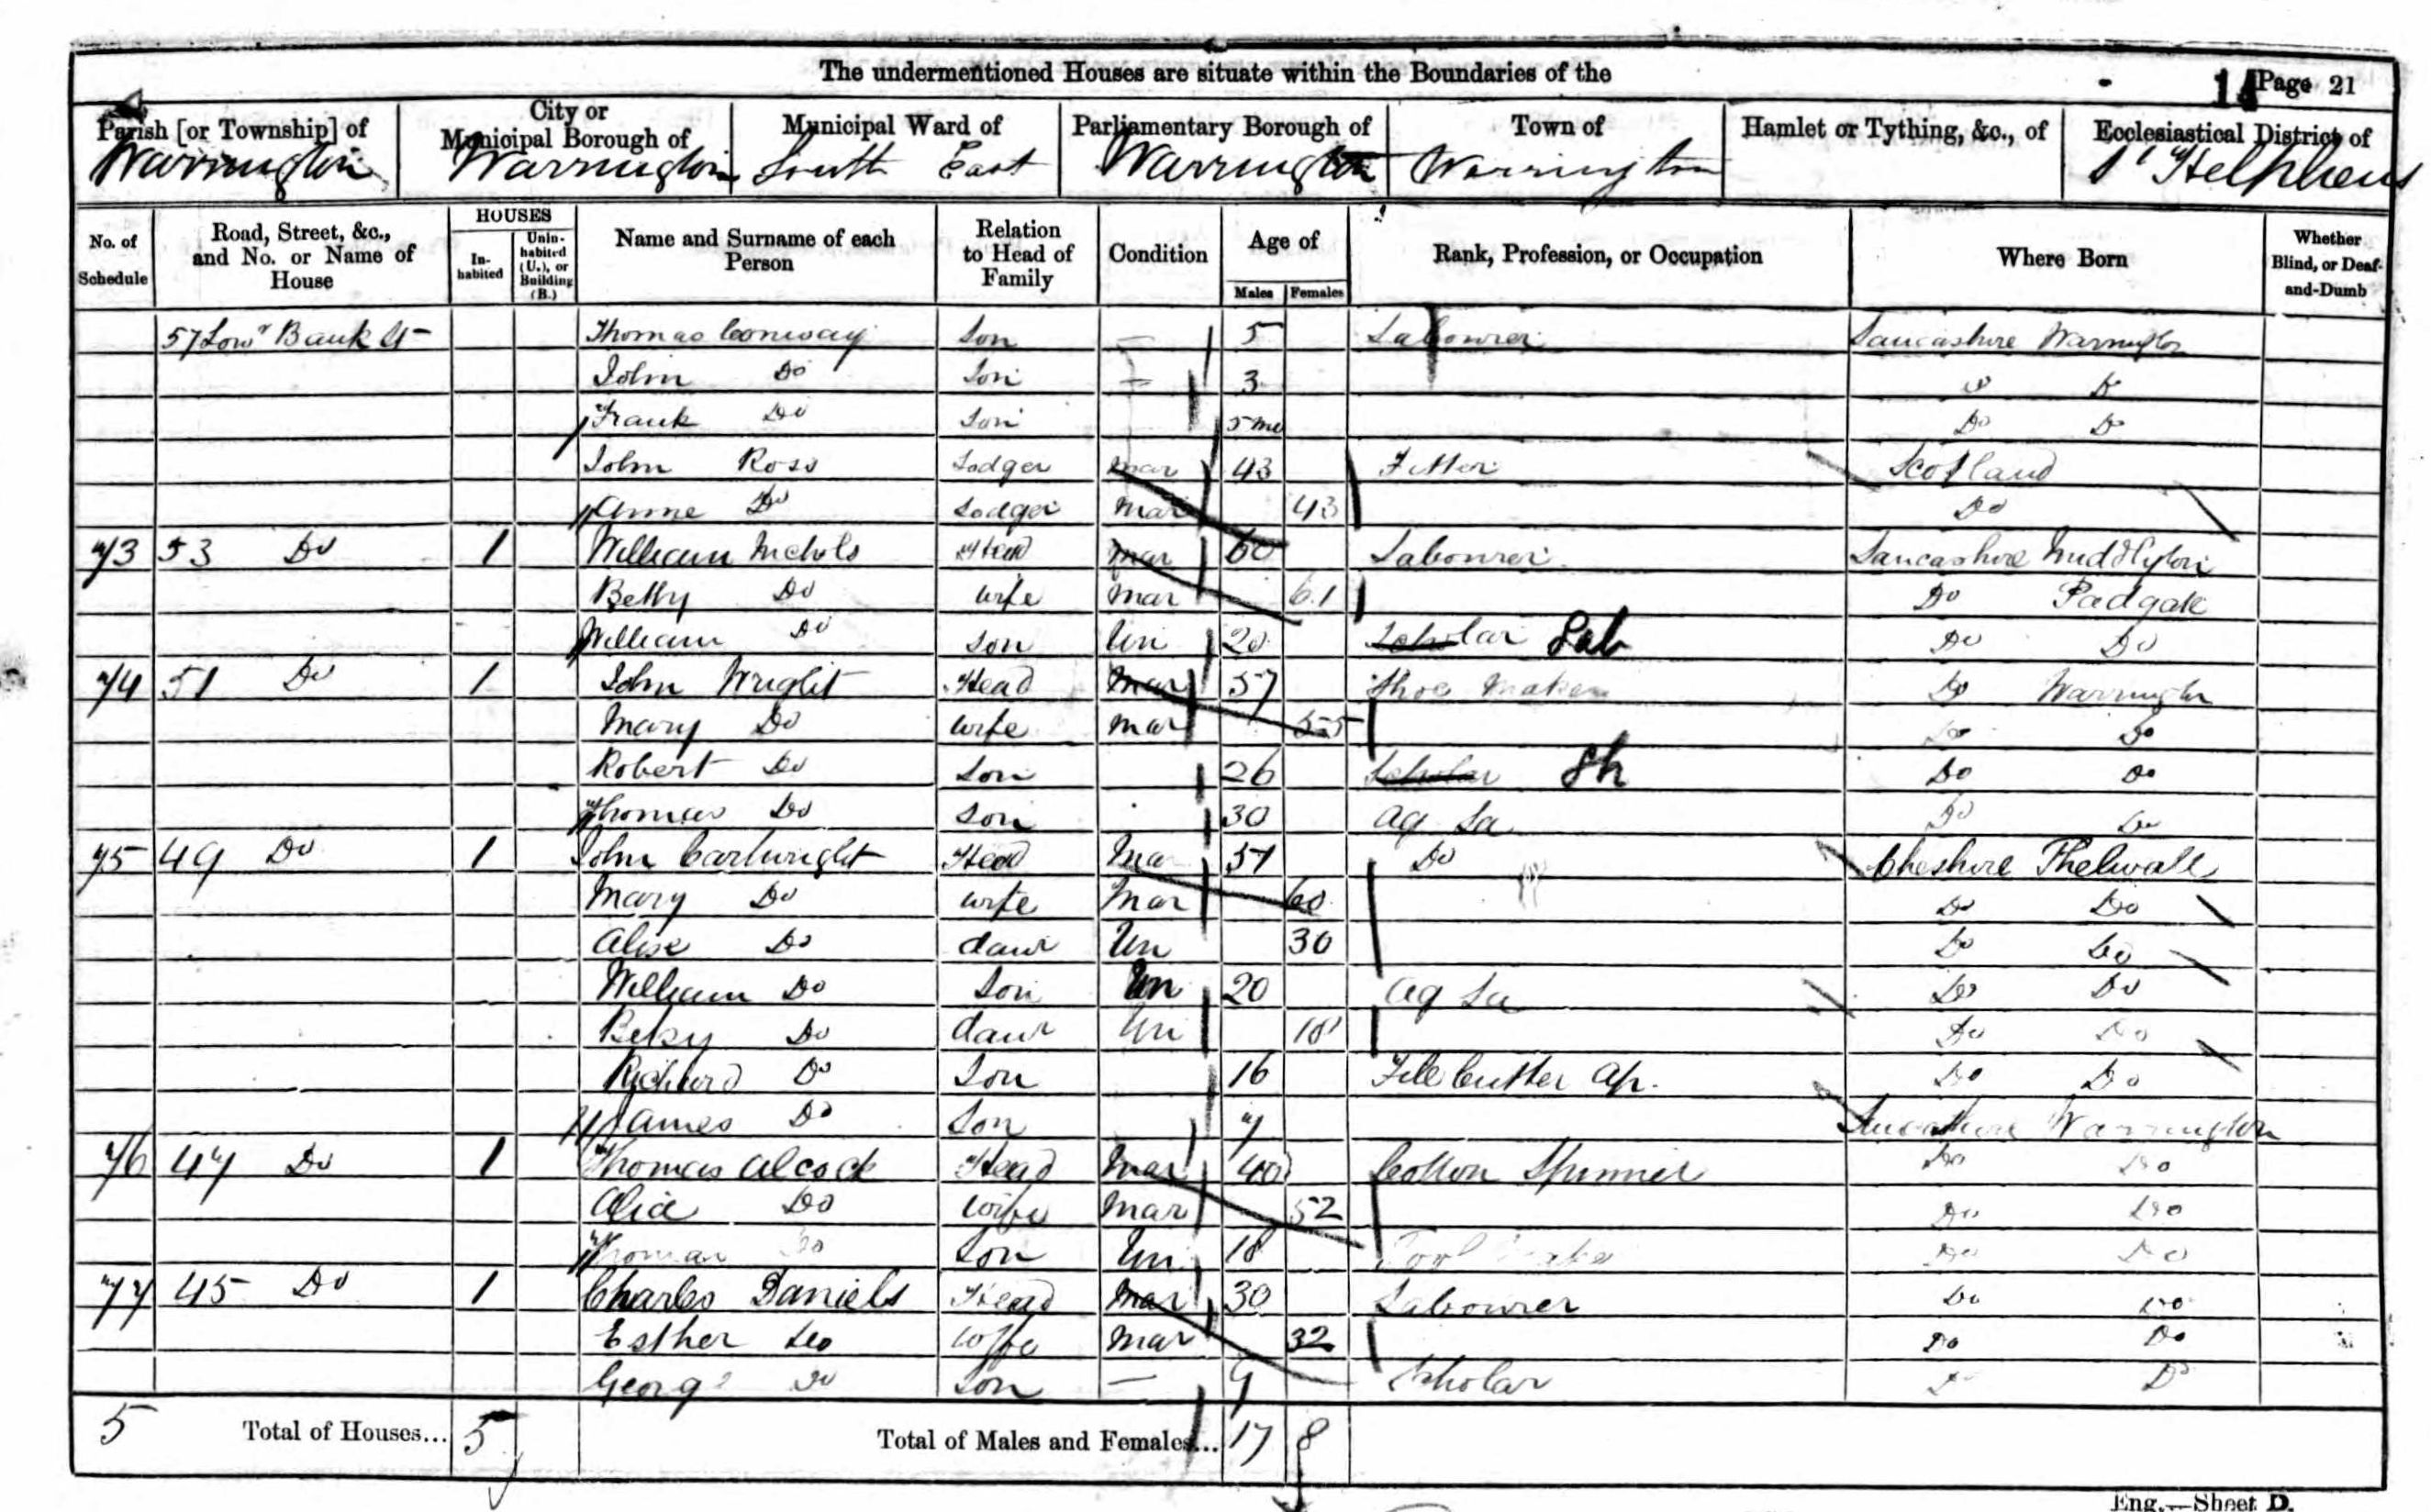 The undermentioned Houses are situate within the Boundaries of the
14 Page 21
Parish [or Township] of
Warrington
City or Municipal Borough of
Warrington
Municipal Ward of
South East
Parliamentary Borough of
Warrington
Town of
Warrington
Hamlet or Tything, &c., of
Ecclesiastical District of
St Helphens
No. of Schedule
Road, Street, &c., and No. or Name of House
HOUSES
In-habited
Unin-habited (U.), or Building (B.)
Name and Surname of each Person
Relation to Head of Family
Condition
Age of
Males Females
Rank, Profession, or Occupation
Where Born
Whether Blind, or Deaf-and-Dumb
57 Lowr Bank St Thomas Conway Son — 5 Labourer Lancashire Warrington
John Do Son — 3 Do Do
Frank Do Son 5 mo Do Do
John Ross Lodger Mar 43 Fitter Scotland
Anne Do Lodger Mar 43 Do
73 53 Do 1 William Nichols Head Mar 60 Labourer Lancashire
Betty Do Wife Mar 61 Do Padgate
William Do Son Un 20 Scholar Lab Do Do
74 51 Do 1 John Wright Head Mar 57 Shoe Maker Do Warrington
Mary Do Wife Mar 55 Do Do
Robert Do Son 26 Scholar Sh Do Do
Thomas Do Son 30 Ag La Do Do
75 49 Do 1 John Cartwright Head Mar 57 Do Cheshire Thelwall
Mary Do Wife Mar 60 Do Do
Alise Do Daur Un 30 Do Do
William Do Son Un 20 Ag La Do Do
Betsy Do Daur Un 18 Do Do
Richard Do Son 16 File Cutter Ap. Do Do
James Do Son 7 Lancashire Warrington
76 47 Do 1 Thomas Alcock Head Mar 40 Cotton Spinner Do Do
Alice Do Wife Mar 52 Do Do
Thomas Do Son Un 18 Tool Maker Do Do
77 45 Do 1 Charles Daniels Head Mar 30 Labourer Do Do
Esther Do Wife Mar 32 Do Do
George Do Son — 9 Scholar Do Do
5 Total of Houses... 5 Total of Males and Females... 17 8
Eng.—Sheet D.